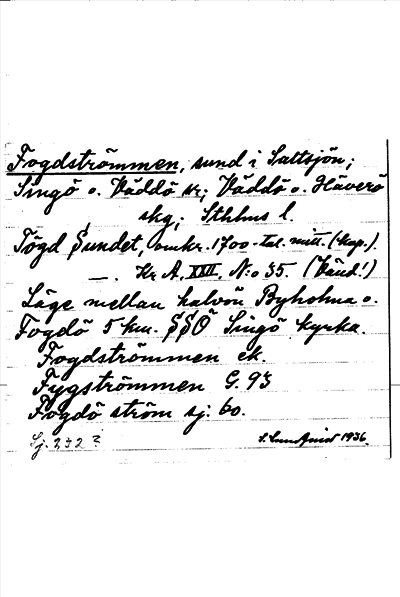 Fogdströmmen, sund i Saltsjön;
Singö o. Väddö kr; Väddö o. Häverö
skg; Sthlms l.
Fögd Sundet, omkr. 1700-tal. mitt. (kop.).
— . Kr A. XXII, N:o 35. (Vänd!)
Läge mellan halvön Byholma o.
Fogdö 5 km. SSÖ Singö kyrka.
Fogdströmmen ek.
Fygströmmen G. 93
Fogdö ström sj. 60.
Sj. 252?
1936.